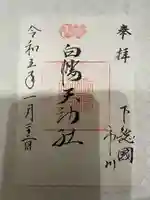 奉拝
下総國
市川
白幡天神社
令和五年一月二日